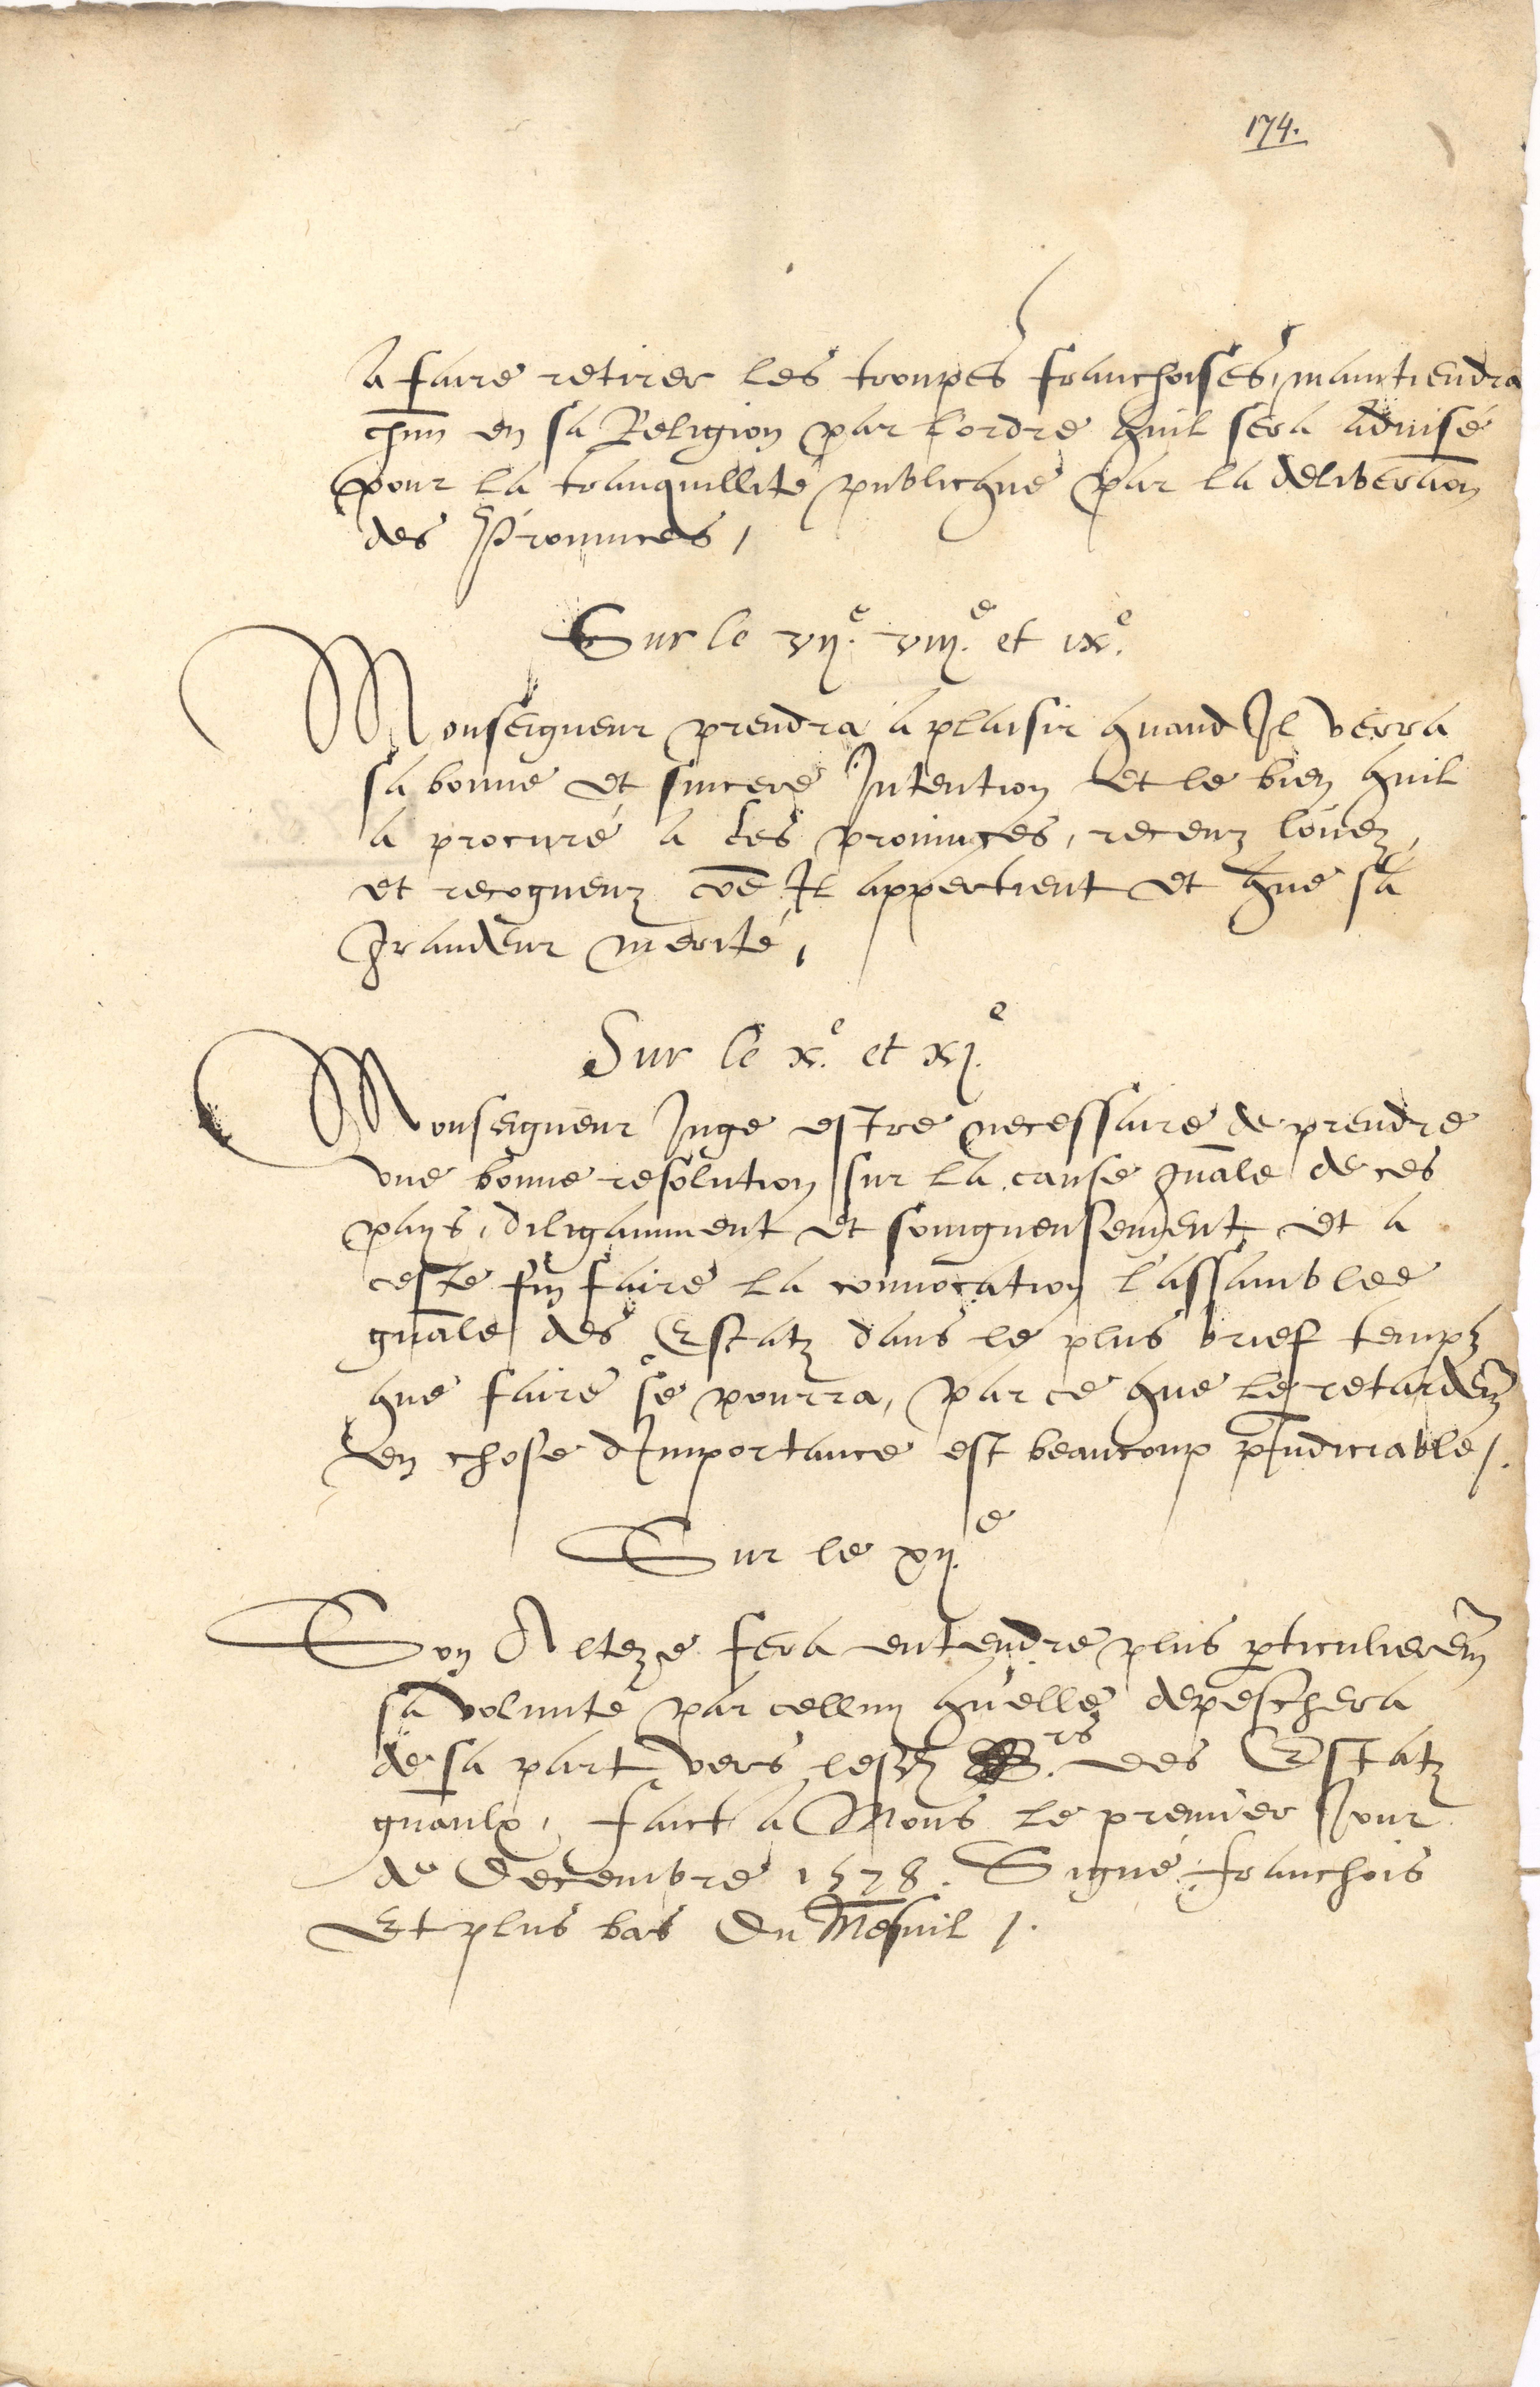 174.
a faire retirer les trouppes franchoises, maintiendra
chūn en sa Religion par lordre quil sera aduisé
pour la tranquillité publicque par la deliberaōn
des Prouinces,
Sur le vij.e viij.e et ix.e
Monseigneur prendra a plaisir quand Il verra
sa bonne et sincere Intention et le bien quil
a procuré a ces prouinces, receuz louez,
et recogneuz cōē Il appertient et que sa
grandeur merité,
Sur le x.e et xj.e
Monseigneur Juge estre necessaire de prendre
vne bonne resolution sur la cause gnāle de ces
pays, diligamment et songneusement et a
ceste fin faire la conuocation l'assamblee
gnāle des Estatz dans le plus brief temps
que faire se pourra, par ce que le retardem̄
en chose dImportance est beaucoup p̄Iudiciable /.
Sur le xij.e
Son Alteze fera entendre plus p̄ticulierem̄
sa volunté par celluy qu'elle depeschera
de sa part vers lesdz S.rs des Estatz
gnaulx, faict a Mons le premier Jour
de Decembre 1578. Signé, franchois
Et plus bas Du Mesnil /.